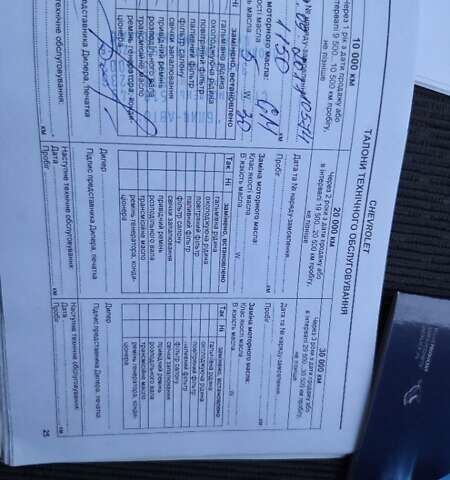 CHEVROLET
ТАЛОНИ ТЕХНІЧНОГО ОБСЛУГОВУВАННЯ
10 000 км
Через 1 рік з дати продажу або
в інтервалі 9 500 - 10 500 км пробігу,
не пізніше
1150
моторного масла:
GM
масла
5 W 30
замінено, встановлено
гальмівна рідина
охолоджуюча рідина
повітряний фільтр
паливний фільтр
фільтр салону
свічки запалювання
привідний ремінь
розподільного вала
трансмісійне масло
ремінь генератора, конди-
ціонера
Представника Дилера, печатка
технічне обслуговування:
км
20 000 км
Через 2 роки з дати продажу або
в інтервалі 19 500 - 20 500 км пробігу,
не пізніше
Дата та № наряду-замовлення
Пробіг км
Заміна моторного масла:
Клас якості масла
В`язкість масла W
Так Ні замінено, встановлено
гальмівна рідина
охолоджуюча рідина
повітряний фільтр
паливний фільтр
фільтр салону
свічки запалювання
привідний ремінь
розподільного вала
трансмісійне масло
ремінь генератора, конди-
ціонера
Дилер
Підпис представника Дилера, печатка
Наступне технічне обслуговування:
Дата
Пробіг км
30 000 км
Через 3 роки з дати продажу або
в інтервалі 29 500 - 30 500 км пробігу,
не пізніше
Дата та № наряду-замовлення
Пробіг км
Заміна моторного масла:
Клас якості масла
В`язкість масла W
Так Ні замінено, встановлено
гальмівна рідина
охолоджуюча рідина
повітряний фільтр
паливний фільтр
фільтр салону
свічки запалювання
привідний ремінь
розподільного вала
трансмісійне масло
ремінь генератора, конди-
ціонера
Дилер
Підпис представника Дилера, печатка
Наступне технічне обслуговування:
Дата
Пробіг км
25